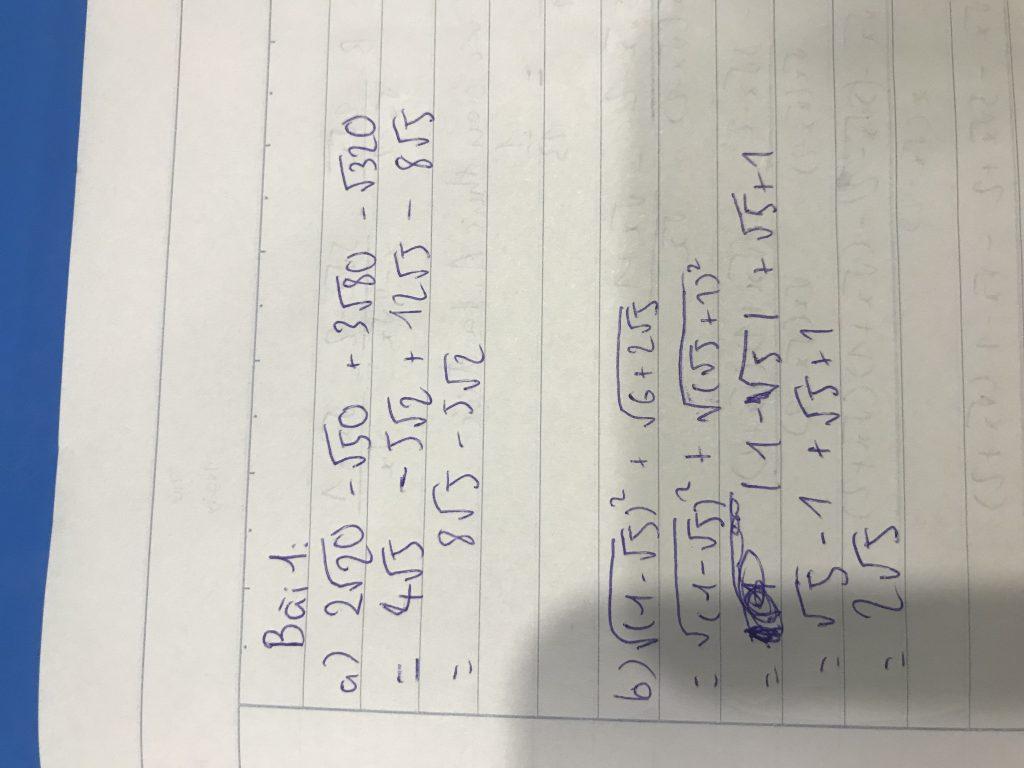 Bài 1:
a) 2√20 - √50 + 3√80 - √320
= 4√5 - 5√2 + 12√5 - 8√5
= 8√5 - 5√2
b) √(1-√5)² + √6+2√5
= √(1-√5)² + √(√5+1)²
= |1-√5| + √5+1
= √5 - 1 + √5 + 1
= 2√5